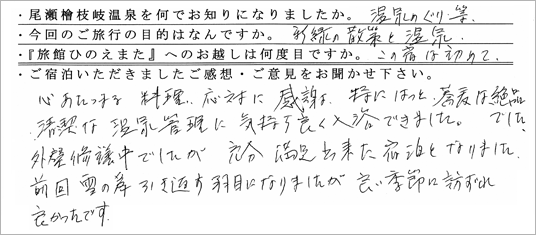 ・尾瀬檜枝岐温泉を何でお知りになりましたか。温泉めぐり等
・今回のご旅行の目的はなんですか。新緑の散策と温泉.
・『旅館ひのえまた』へのお越しは何度目ですか。この宿は初めて.
・ご宿泊いただきましたご感想・ご意見をお聞かせ下さい。
心あたたまる 料理、応対に 感謝. 特にはっと、蕎麦は絶品でした
清潔な 温泉管理に 気持ち良く入浴できました。
外壁修繕中でしたが 充分 満足出来た 宿泊となりました.
前回 雪の為 引き返す 羽目になりましたが 良い季節に訪ずれ
良かったです.